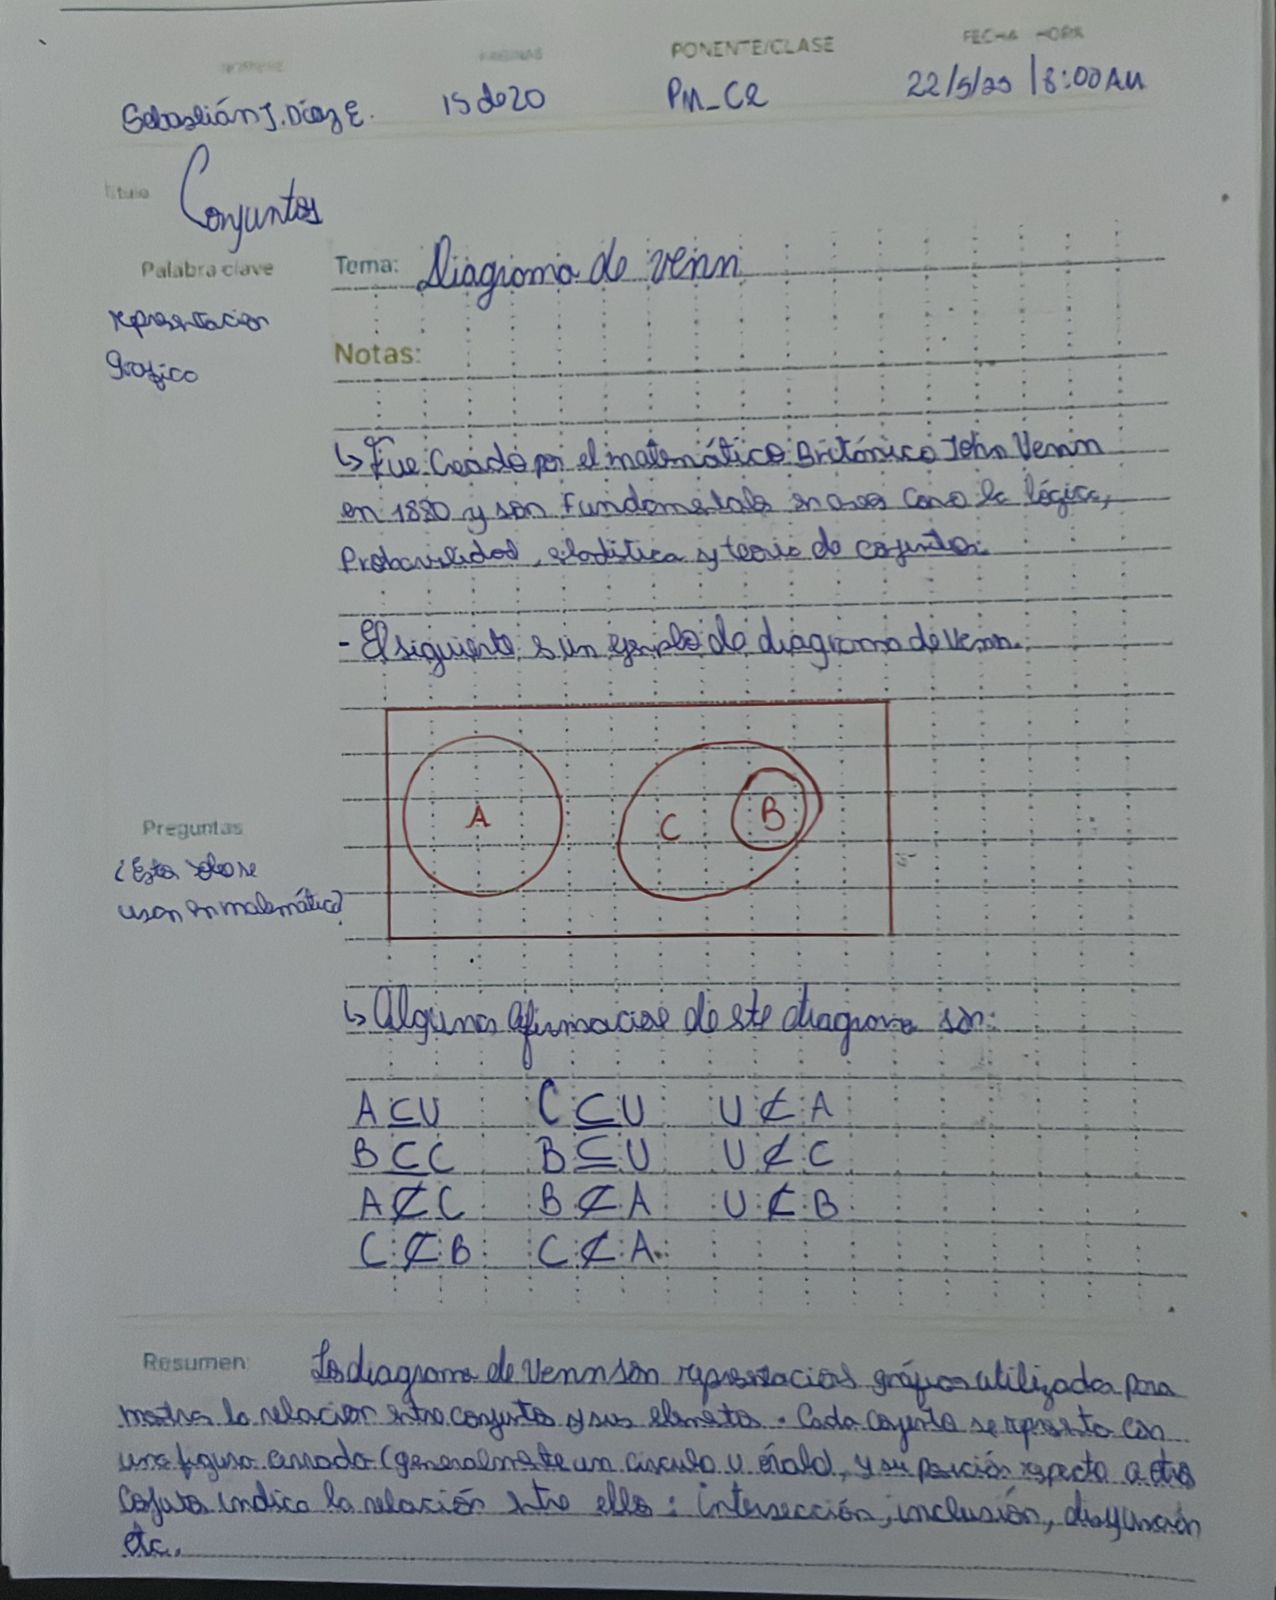 NOMBRE PAGINAS PONENTE/CLASE FECHA HORA
Sebastián J. Díaz E. 15 de 20 PM_C2 22/5/25 | 8:00 AM
Titulo Conjuntos
Palabra clave
representacion
grafico
Tema: Diagrama de venn
Notas:
↳ Fue Creado por el matemático Británico John Venn
en 1880 y son Fundamentales en areas Como la lógica,
Probabilidad, estadística y teoria de conjuntos.
- El siguiente es un ejemplo de diagrama de Venn.
A C B
Preguntas
¿Estos solo se
usan en matemática?
↳ Algunas afirmaciones de este diagrama son:
A ⊆ U C ⊆ U U ⊄ A
B ⊆ C B ⊆ U U ⊄ C
A ⊄ C B ⊄ A U ⊄ B
C ⊄ B C ⊄ A.
Resumen: Los diagrama de Venn son representacions gráficas utilizadas para
mostrar la relacion entre conjuntos y sus elementos. Cada conjunto se representa con
una figura cerrada (generalmente un circulo u óvalo), y su posición respecto a otros
Conjuntos indica la relación entre ellos: intersección, inclusión, disyunción
etc.